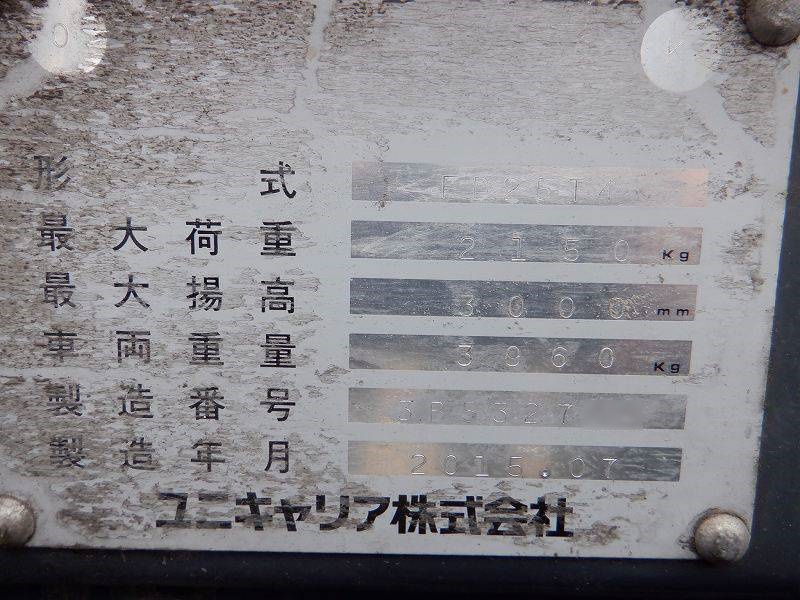 形式 FD25T4
最大荷重 2150 Kg
最大揚高 3000 mm
車両重量 3960 Kg
製造番号 3P5327
製造年月 2015.07
ユニキャリア株式会社